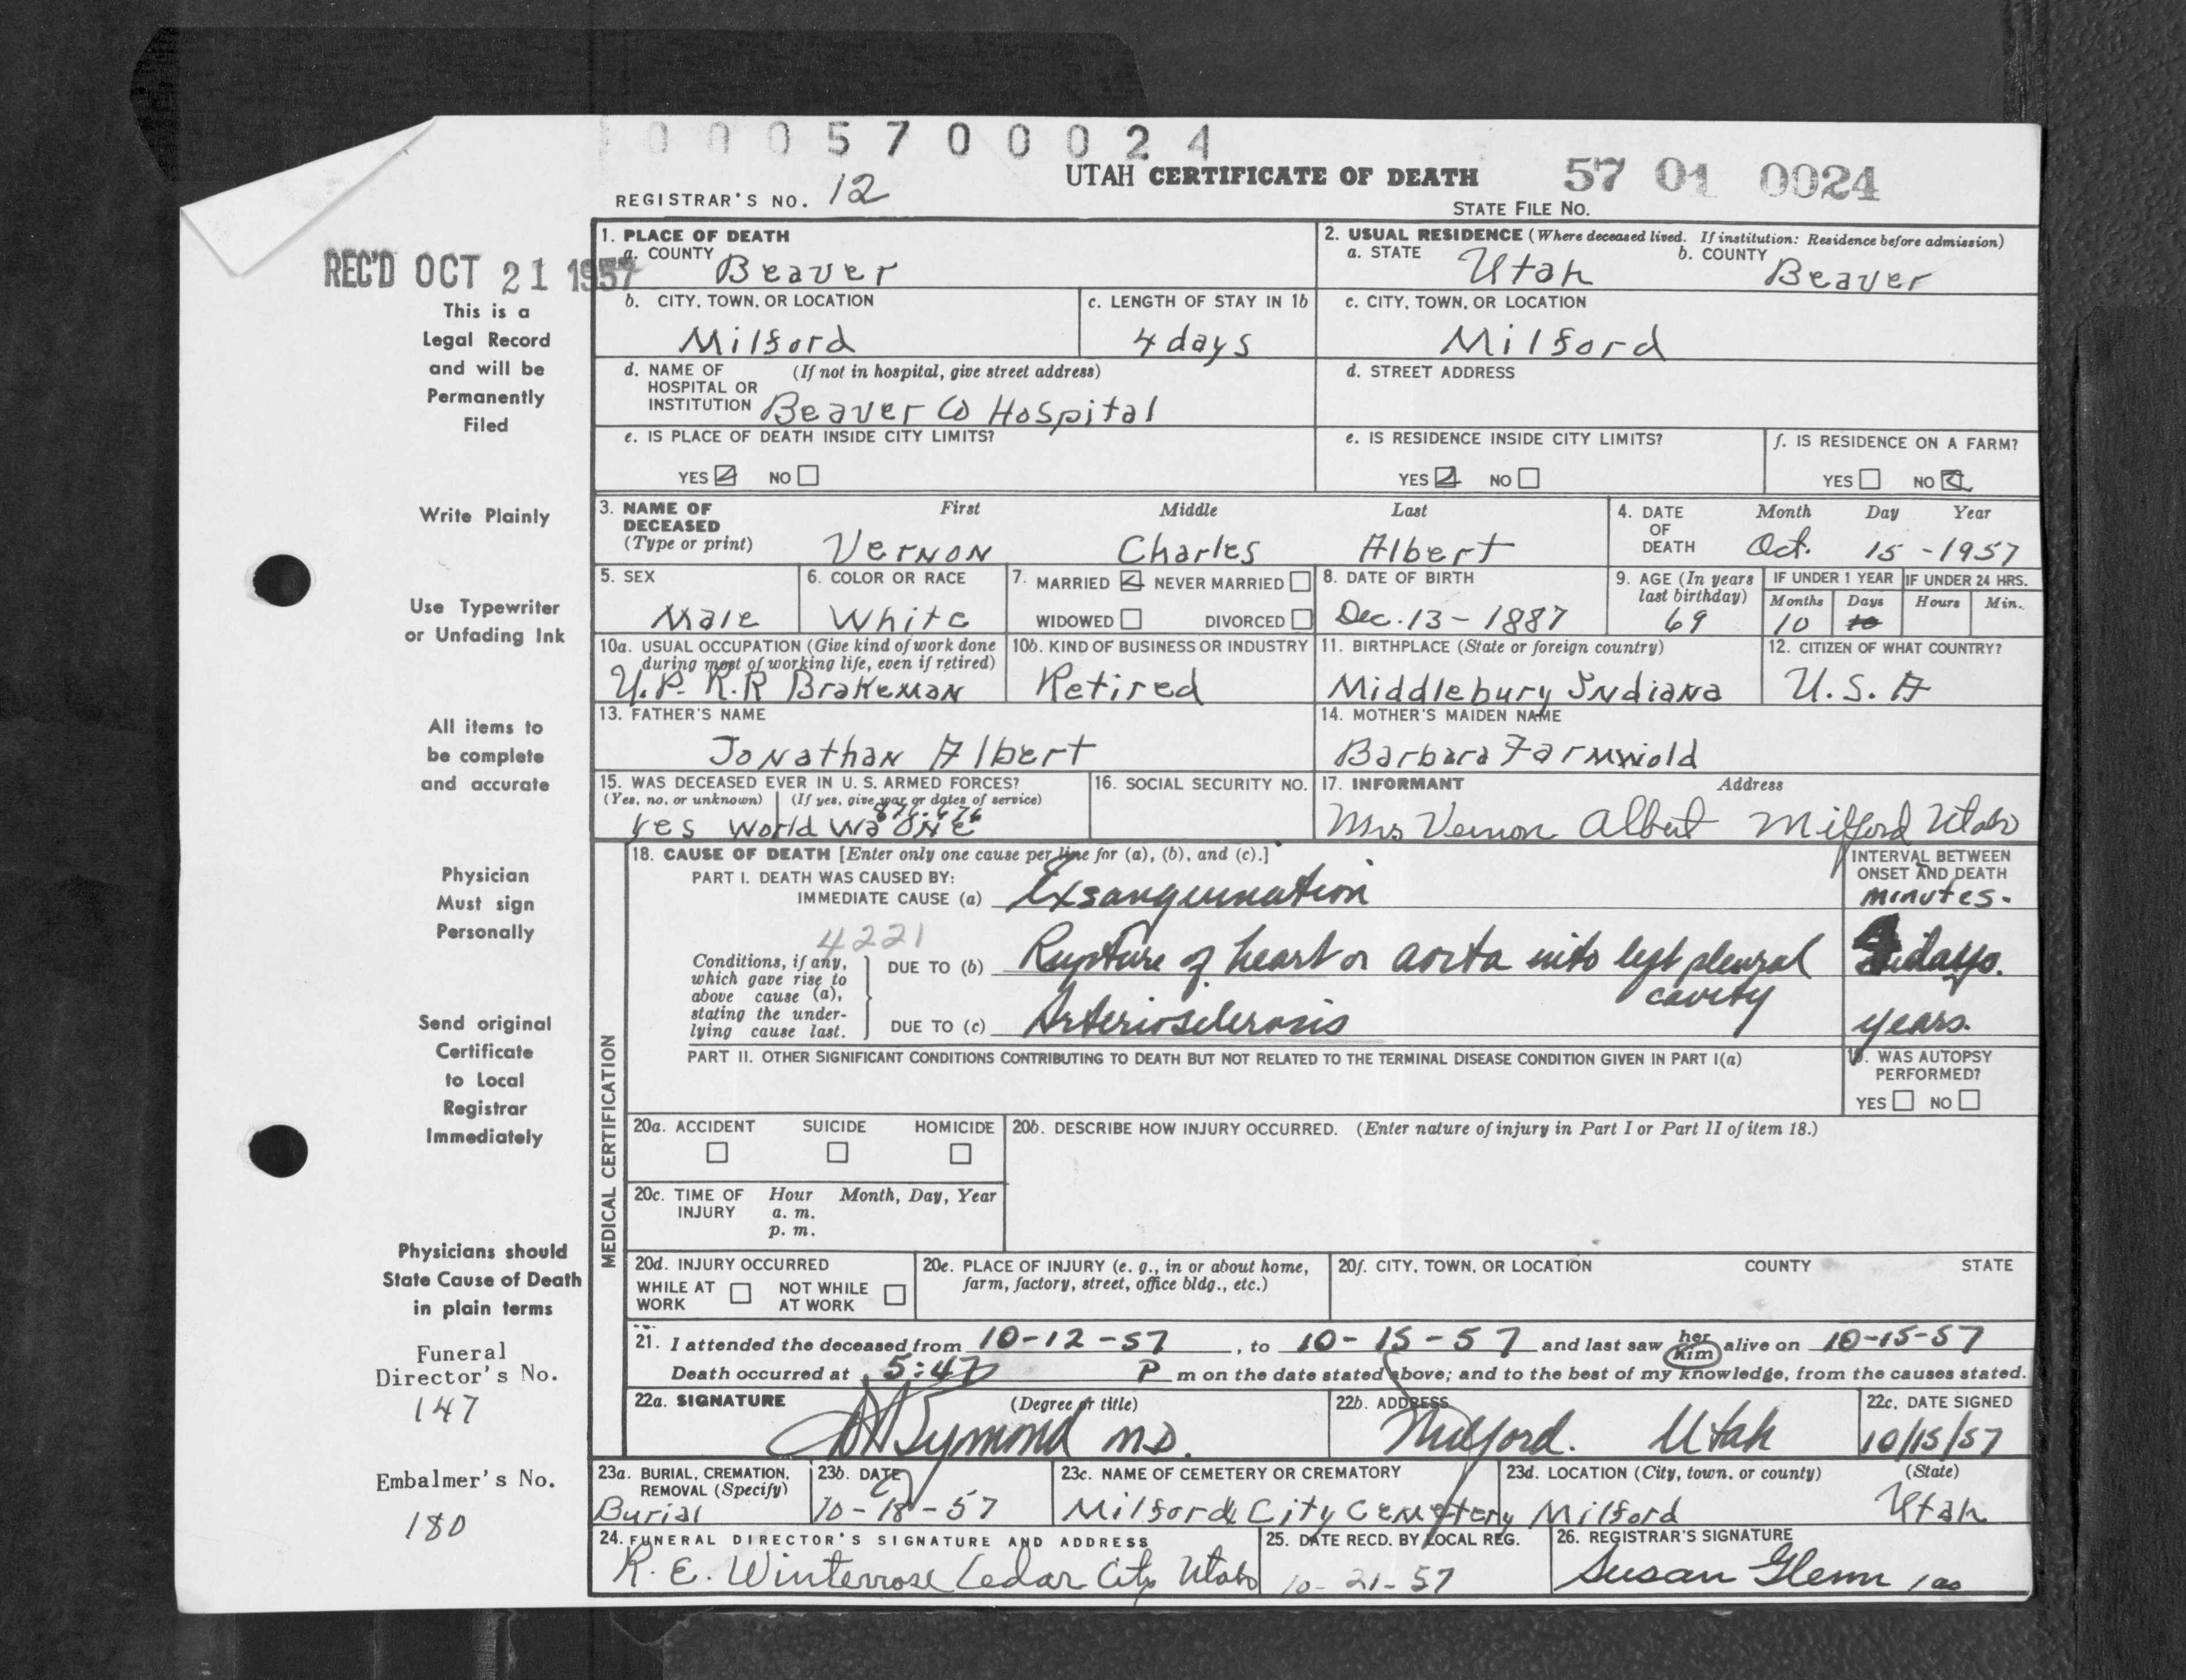 0005700024
UTAH CERTIFICATE OF DEATH
57 01 0024
REGISTRAR'S NO. 12
STATE FILE NO.
REC'D OCT 21 1957
This is a
Legal Record
and will be
Permanently
Filed
Write Plainly
Use Typewriter
or Unfading Ink
All items to
be complete
and accurate
Physician
Must sign
Personally
Send original
Certificate
to Local
Registrar
Immediately
Physicians should
State Cause of Death
in plain terms
Funeral
Director's No.
147
Embalmer's No.
180
1. PLACE OF DEATH
a. COUNTY Beaver
2. USUAL RESIDENCE (Where deceased lived. If institution: Residence before admission)
a. STATE Utah b. COUNTY Beaver
b. CITY, TOWN, OR LOCATION
Milford
c. LENGTH OF STAY IN 1b
4 days
c. CITY, TOWN, OR LOCATION
Milford
d. NAME OF (If not in hospital, give street address)
HOSPITAL OR
INSTITUTION Beaver Co Hospital
d. STREET ADDRESS
e. IS PLACE OF DEATH INSIDE CITY LIMITS?
YES NO
e. IS RESIDENCE INSIDE CITY LIMITS?
YES NO
f. IS RESIDENCE ON A FARM?
YES NO
3. NAME OF First Middle Last
DECEASED
(Type or print) Vernon Charles Albert
4. DATE Month Day Year
OF
DEATH Oct. 15 - 1957
5. SEX
Male
6. COLOR OR RACE
White
7. MARRIED NEVER MARRIED
WIDOWED DIVORCED
8. DATE OF BIRTH
Dec. 13 - 1887
9. AGE (In years
last birthday)
69
IF UNDER 1 YEAR IF UNDER 24 HRS.
Months Days Hours Min.
10 10
10a. USUAL OCCUPATION (Give kind of work done
during most of working life, even if retired)
U.P. R.R Brakeman
10b. KIND OF BUSINESS OR INDUSTRY
Retired
11. BIRTHPLACE (State or foreign country)
Middlebury Indiana
12. CITIZEN OF WHAT COUNTRY?
U.S.A
13. FATHER'S NAME
Jonathan Albert
14. MOTHER'S MAIDEN NAME
Barbara Farmwold
15. WAS DECEASED EVER IN U. S. ARMED FORCES?
(Yes, no, or unknown) (If yes, give war or dates of service)
Yes World Wa One
16. SOCIAL SECURITY NO.
17. INFORMANT Address
Mrs Vernon Albert Milford Utah
MEDICAL CERTIFICATION
18. CAUSE OF DEATH [Enter only one cause per line for (a), (b), and (c).]
PART I. DEATH WAS CAUSED BY:
IMMEDIATE CAUSE (a) Exsanguination
INTERVAL BETWEEN
ONSET AND DEATH
minutes.
4221
Conditions, if any,
which gave rise to
above cause (a),
stating the under-
lying cause last.
DUE TO (b) Rupture of heart or aorta into left pleural
cavity
days.
DUE TO (c) Arteriosclerosis
years.
PART II. OTHER SIGNIFICANT CONDITIONS CONTRIBUTING TO DEATH BUT NOT RELATED TO THE TERMINAL DISEASE CONDITION GIVEN IN PART I(a)
19. WAS AUTOPSY
PERFORMED?
YES NO
20a. ACCIDENT SUICIDE HOMICIDE
20b. DESCRIBE HOW INJURY OCCURRED. (Enter nature of injury in Part I or Part II of item 18.)
20c. TIME OF Hour Month, Day, Year
INJURY a. m.
p. m.
20d. INJURY OCCURRED
WHILE AT NOT WHILE
WORK AT WORK
20e. PLACE OF INJURY (e. g., in or about home,
farm, factory, street, office bldg., etc.)
20f. CITY, TOWN, OR LOCATION COUNTY STATE
21. I attended the deceased from 10-12-57, to 10-15-57 and last saw her him alive on 10-15-57
Death occurred at 5:47 P m on the date stated above; and to the best of my knowledge, from the causes stated.
22a. SIGNATURE (Degree or title)
Symond M.D.
22b. ADDRESS
Milford. Utah
22c. DATE SIGNED
10/15/57
23a. BURIAL, CREMATION,
REMOVAL (Specify)
Burial
23b. DATE
10-18-57
23c. NAME OF CEMETERY OR CREMATORY
Milford City Cemetery
23d. LOCATION (City, town, or county) (State)
Milford Utah
24. FUNERAL DIRECTOR'S SIGNATURE AND ADDRESS
R. E. Winterrose Cedar City Utah
25. DATE RECD. BY LOCAL REG.
10-21-57
26. REGISTRAR'S SIGNATURE
Susan Glenn